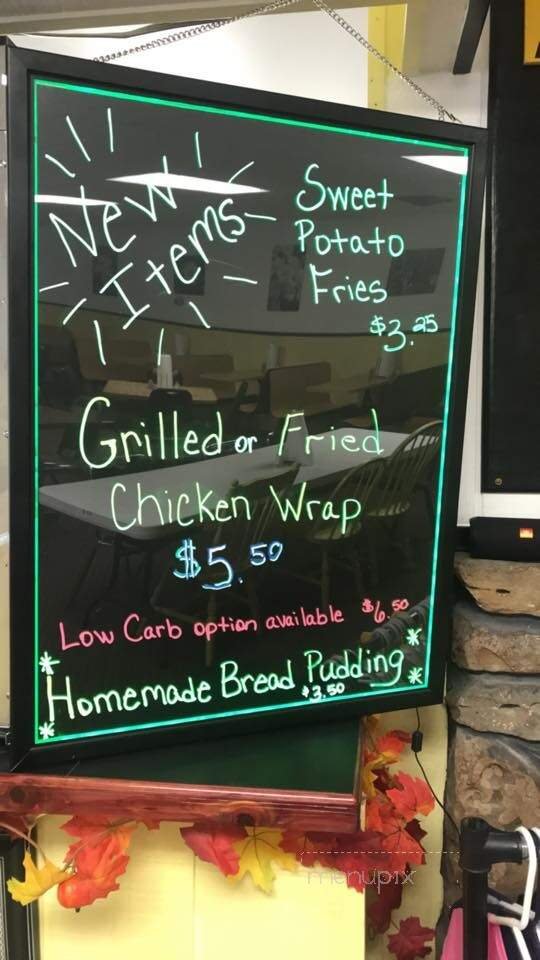 New
Items
Sweet
Potato
Fries
$3.25
Grilled or Fried
Chicken Wrap
$5.50
Low Carb option available $6.50
Homemade Bread Pudding
$3.50
menupix